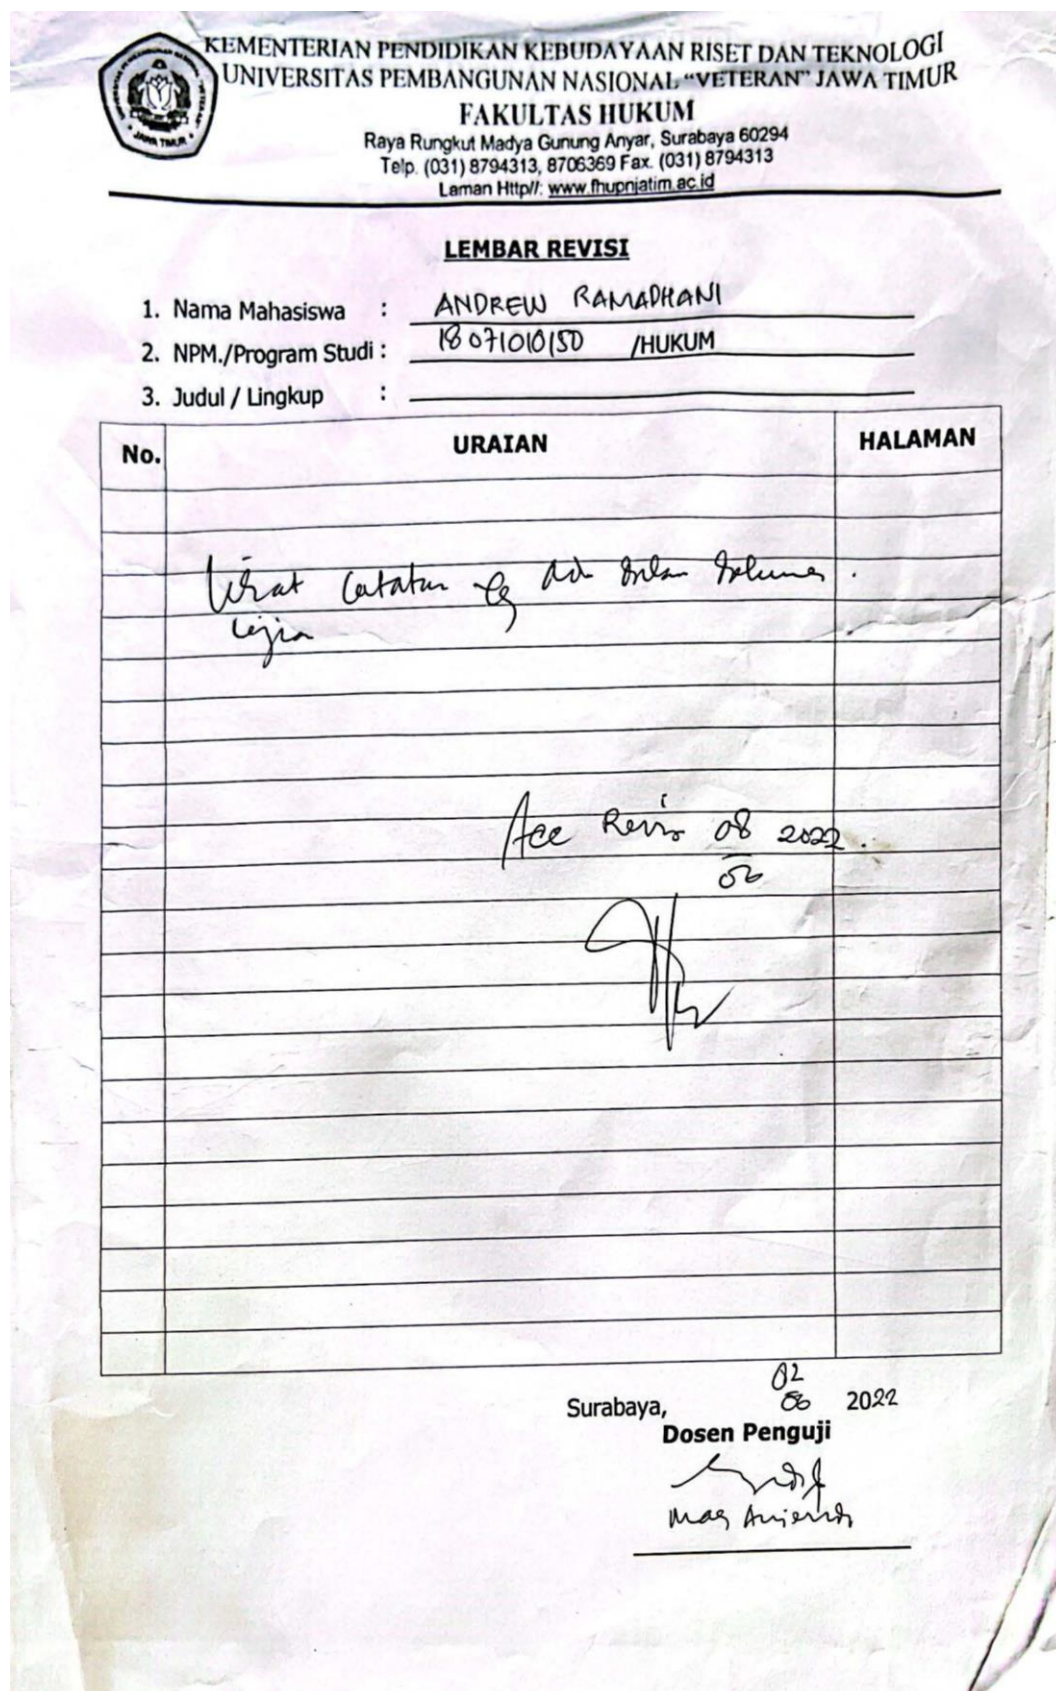 KEMENTERIAN PENDIDIKAN KEBUDAYAAN RISET DAN TEKNOLOGI
UNIVERSITAS PEMBANGUNAN NASIONAL "VETERAN" JAWA TIMUR
FAKULTAS HUKUM
Raya Rungkut Madya Gunung Anyar, Surabaya 60294
Telp. (031) 8794313, 8706369 Fax. (031) 8794313
Laman Http//: www.fhupnjatim.ac.id
JAWA TIMUR
LEMBAR REVISI
1. Nama Mahasiswa : ANDREW RAMADHANI
2. NPM./Program Studi : 18071010150 /HUKUM
3. Judul / Lingkup :
No. URAIAN HALAMAN
lihat catatan yg ada dalam
Acc Revisi 08 2022.
06
02
Surabaya, 06 2022
Dosen Penguji